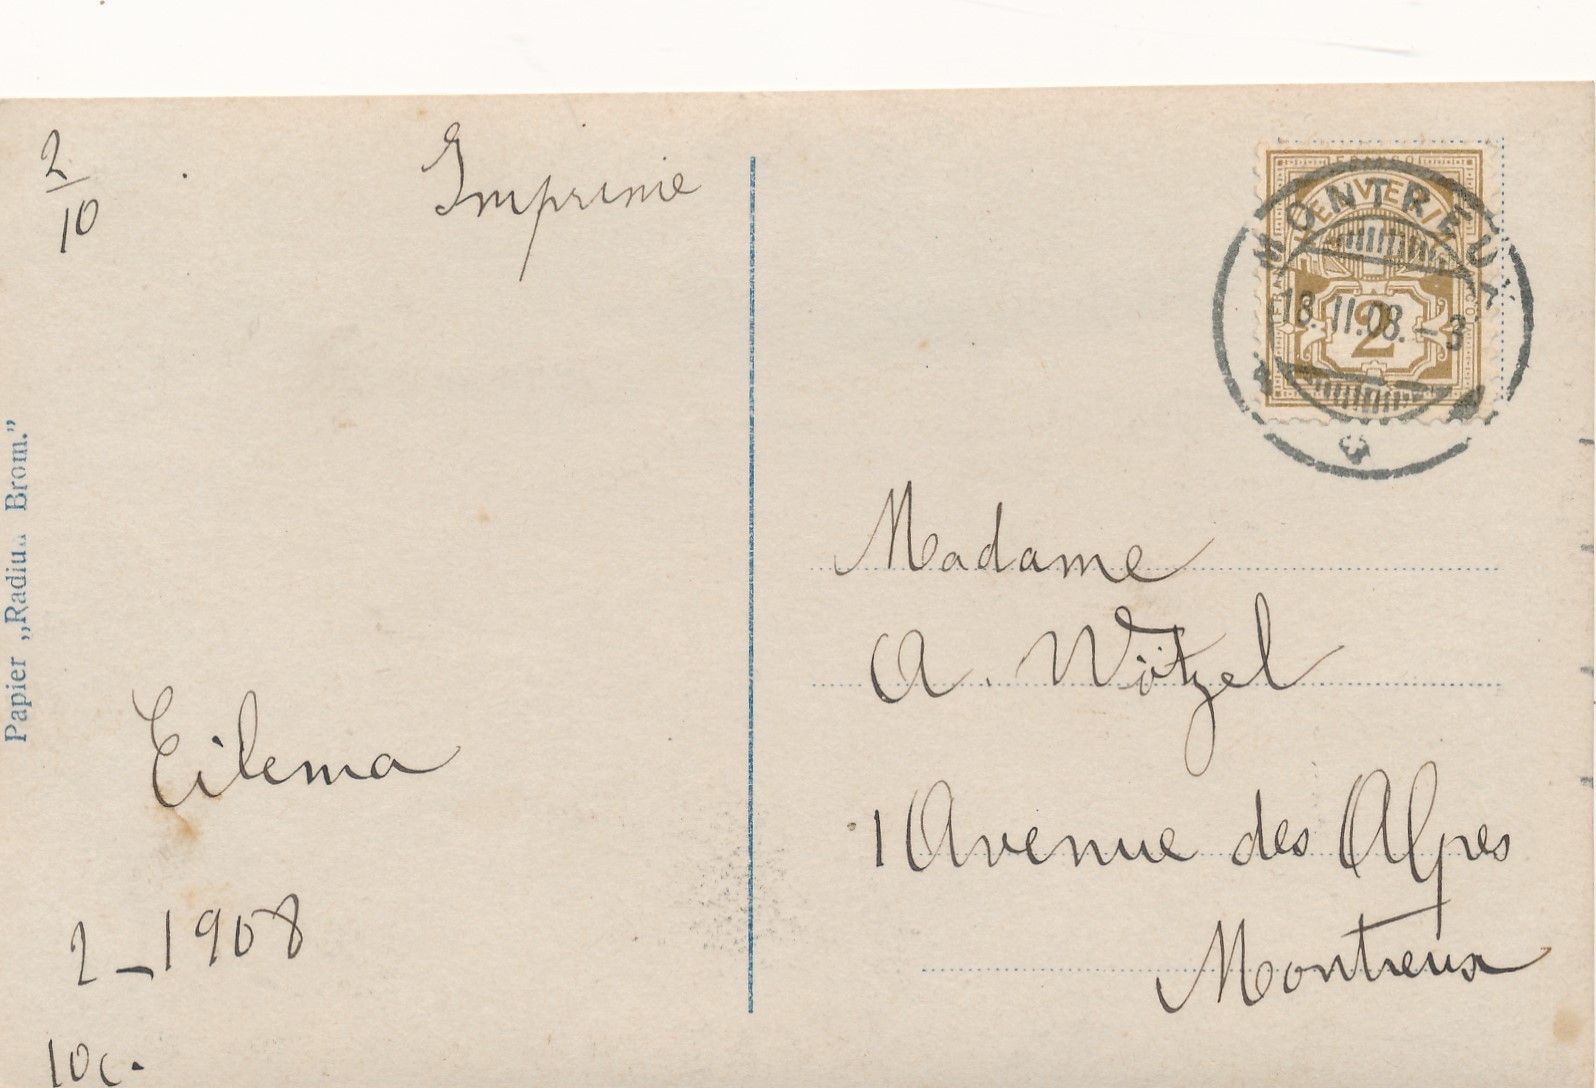 2/10
Imprimé
MONTREUX
18.II.08.-3
2
Papier „Radium Brom.”
Madame
A. Wötzel
1 Avenue des Alpes
Montreux
Eilema
2-1908
10c.